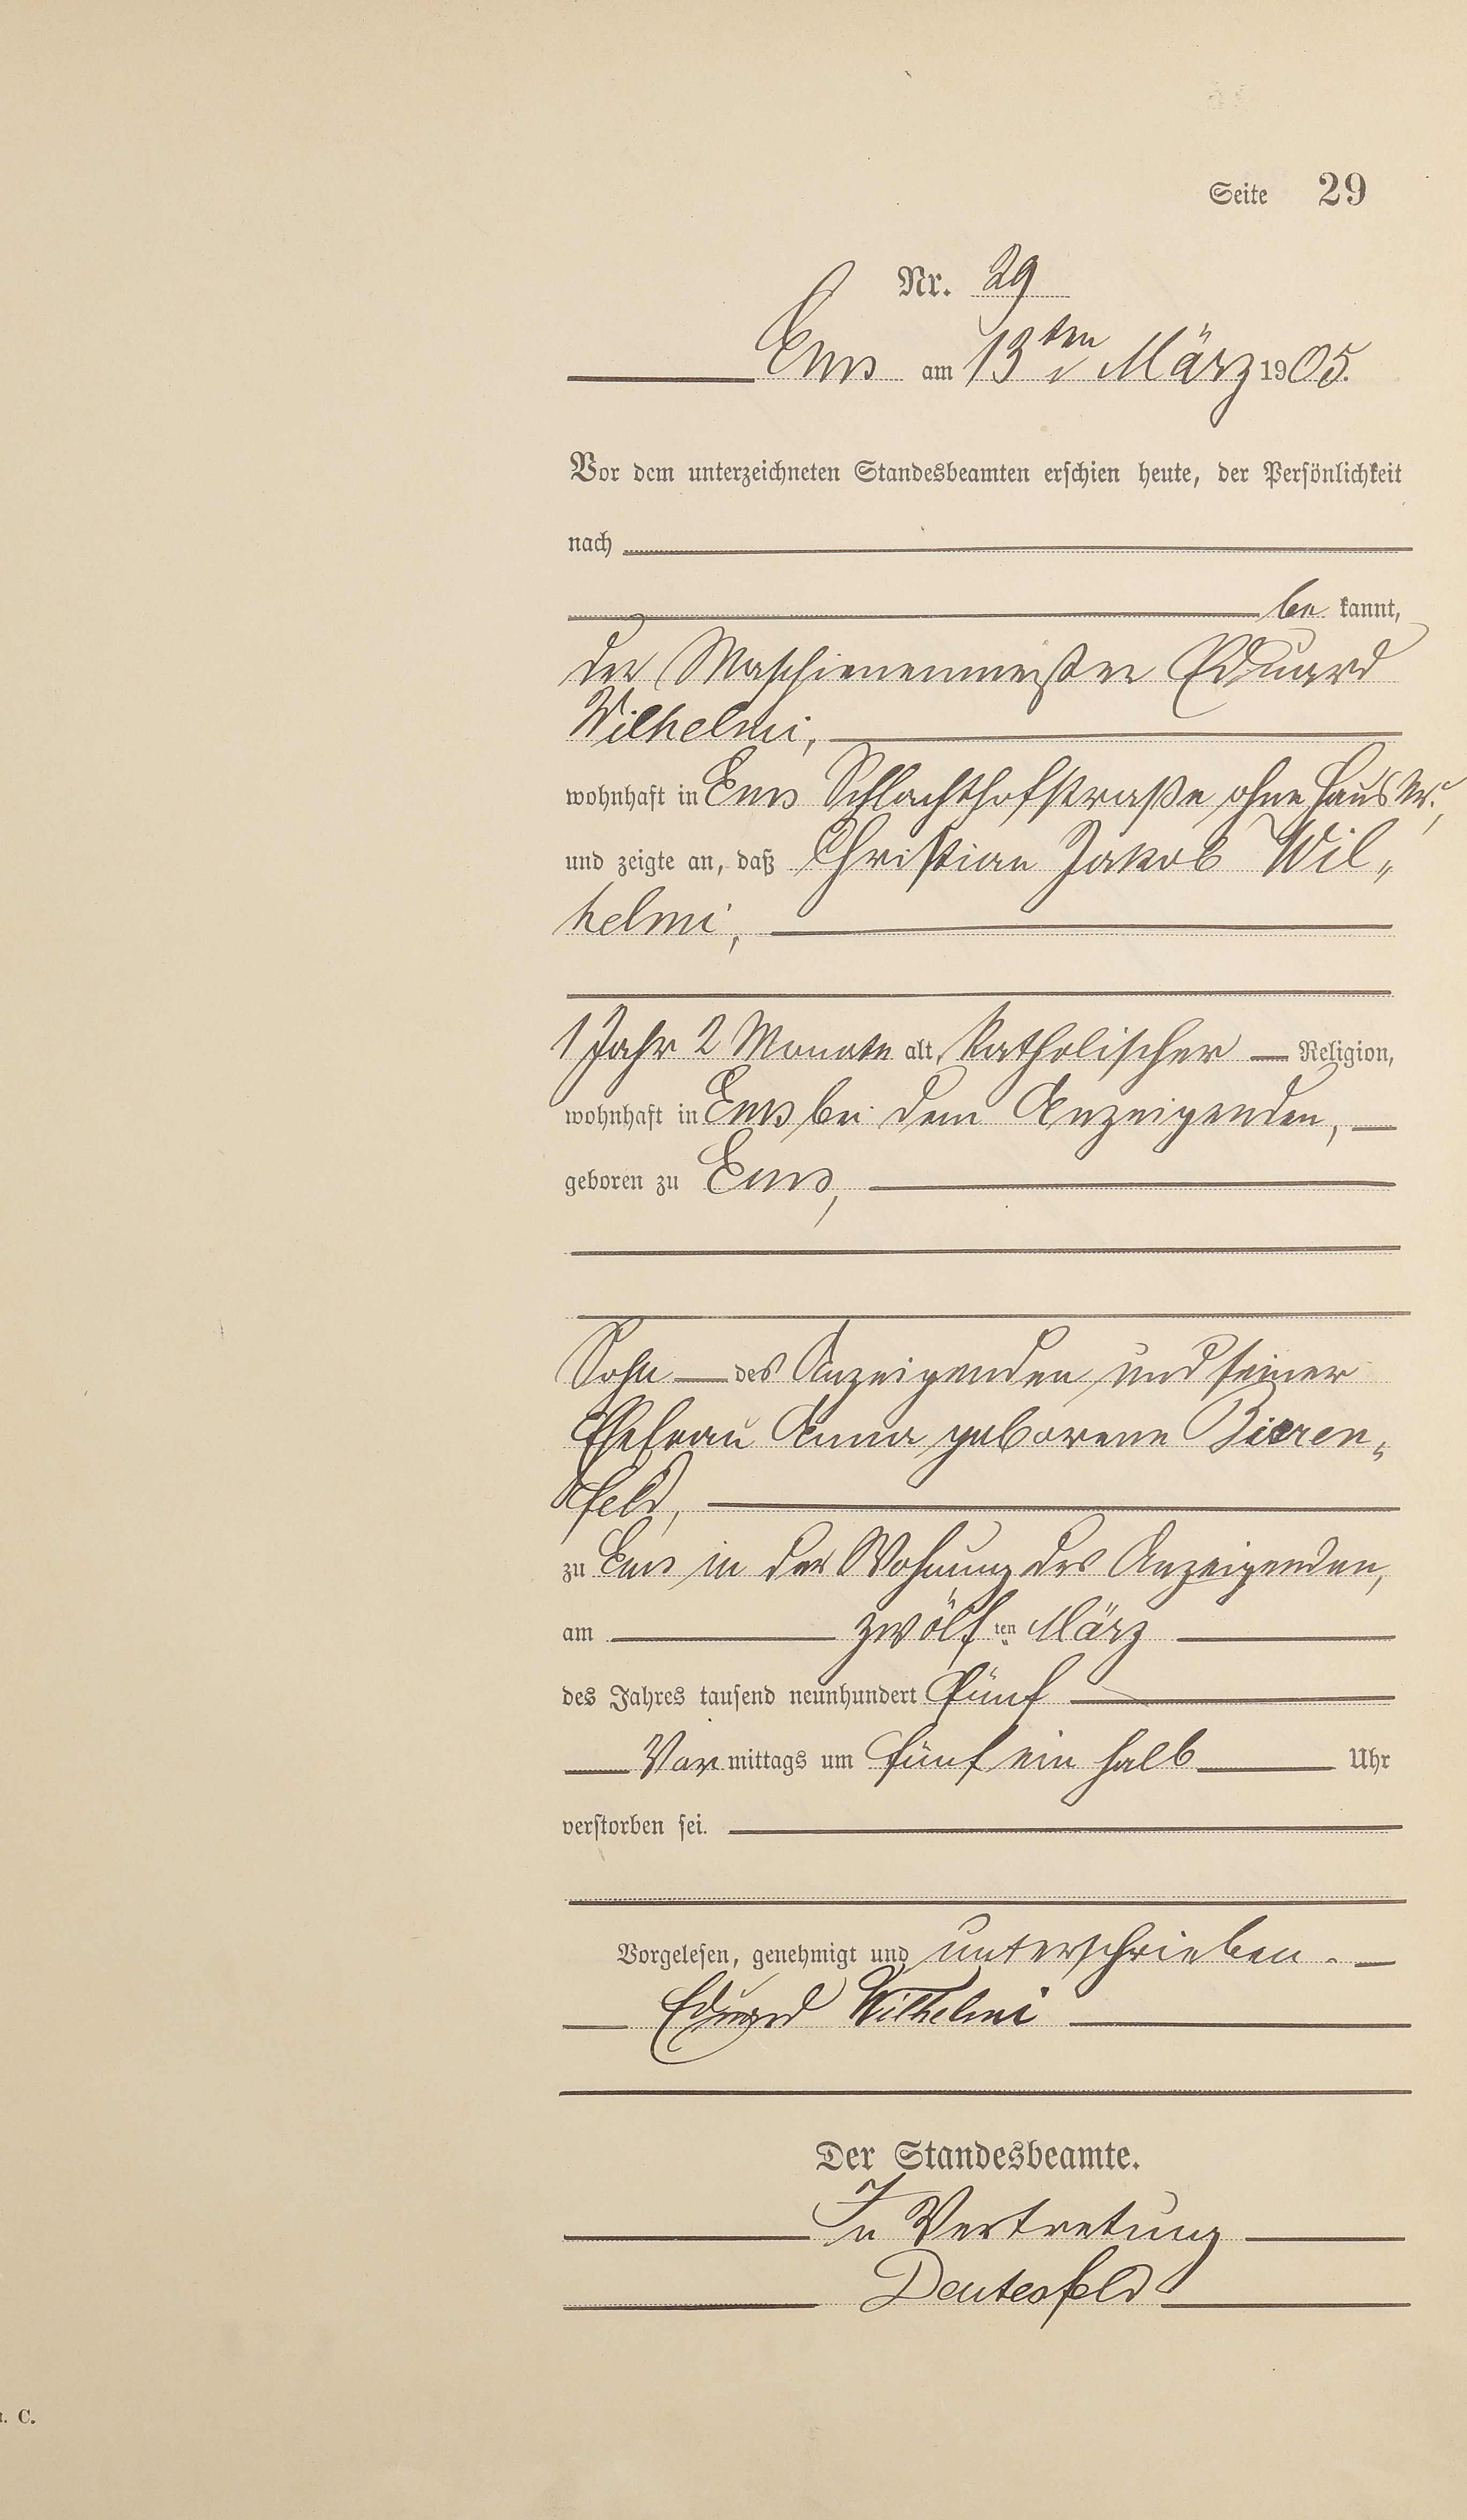 Seite 29
Nr. 29
Ems am 13ten März 1905.
Vor dem unterzeichneten Standesbeamten erschien heute, der Persönlichkeit
nach
be kannt,
der Maschienenmeister Eduard
Wilhelmi,
wohnhaft in Ems Schlachthofstraße ohne Haus Nr.,
und zeigte an, daß Christian Jakob Wil„
helmi,
1 Jahr 2 Monate alt, katholischer Religion,
wohnhaft in Ems bei dem Anzeigenden,
geboren zu Ems,
Sohn des Anzeigenden und seiner
Ehefrau Anna geborene Bieren„
feld,
zu Ems in der Wohnung des Anzeigenden,
am zwölften März
des Jahres tausend neunhundert fünf
Vor mittags um fünf ein halb Uhr
verstorben sei.
Vorgelesen, genehmigt und unterschrieben.
Eduard Wilhelmi
Der Standesbeamte.
In Vertretung
C.